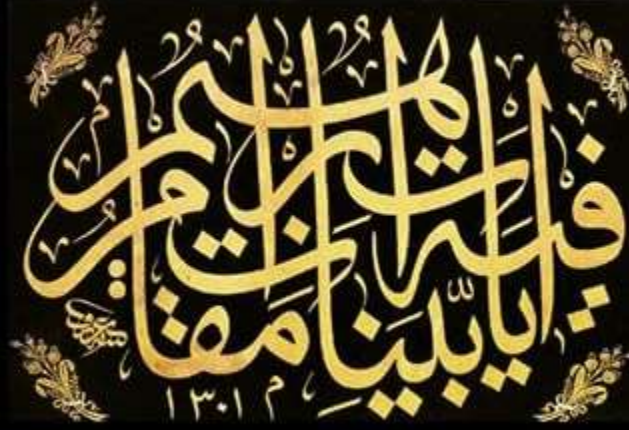 فيه ايات بينات مقام ابرهيم
١٣٠١